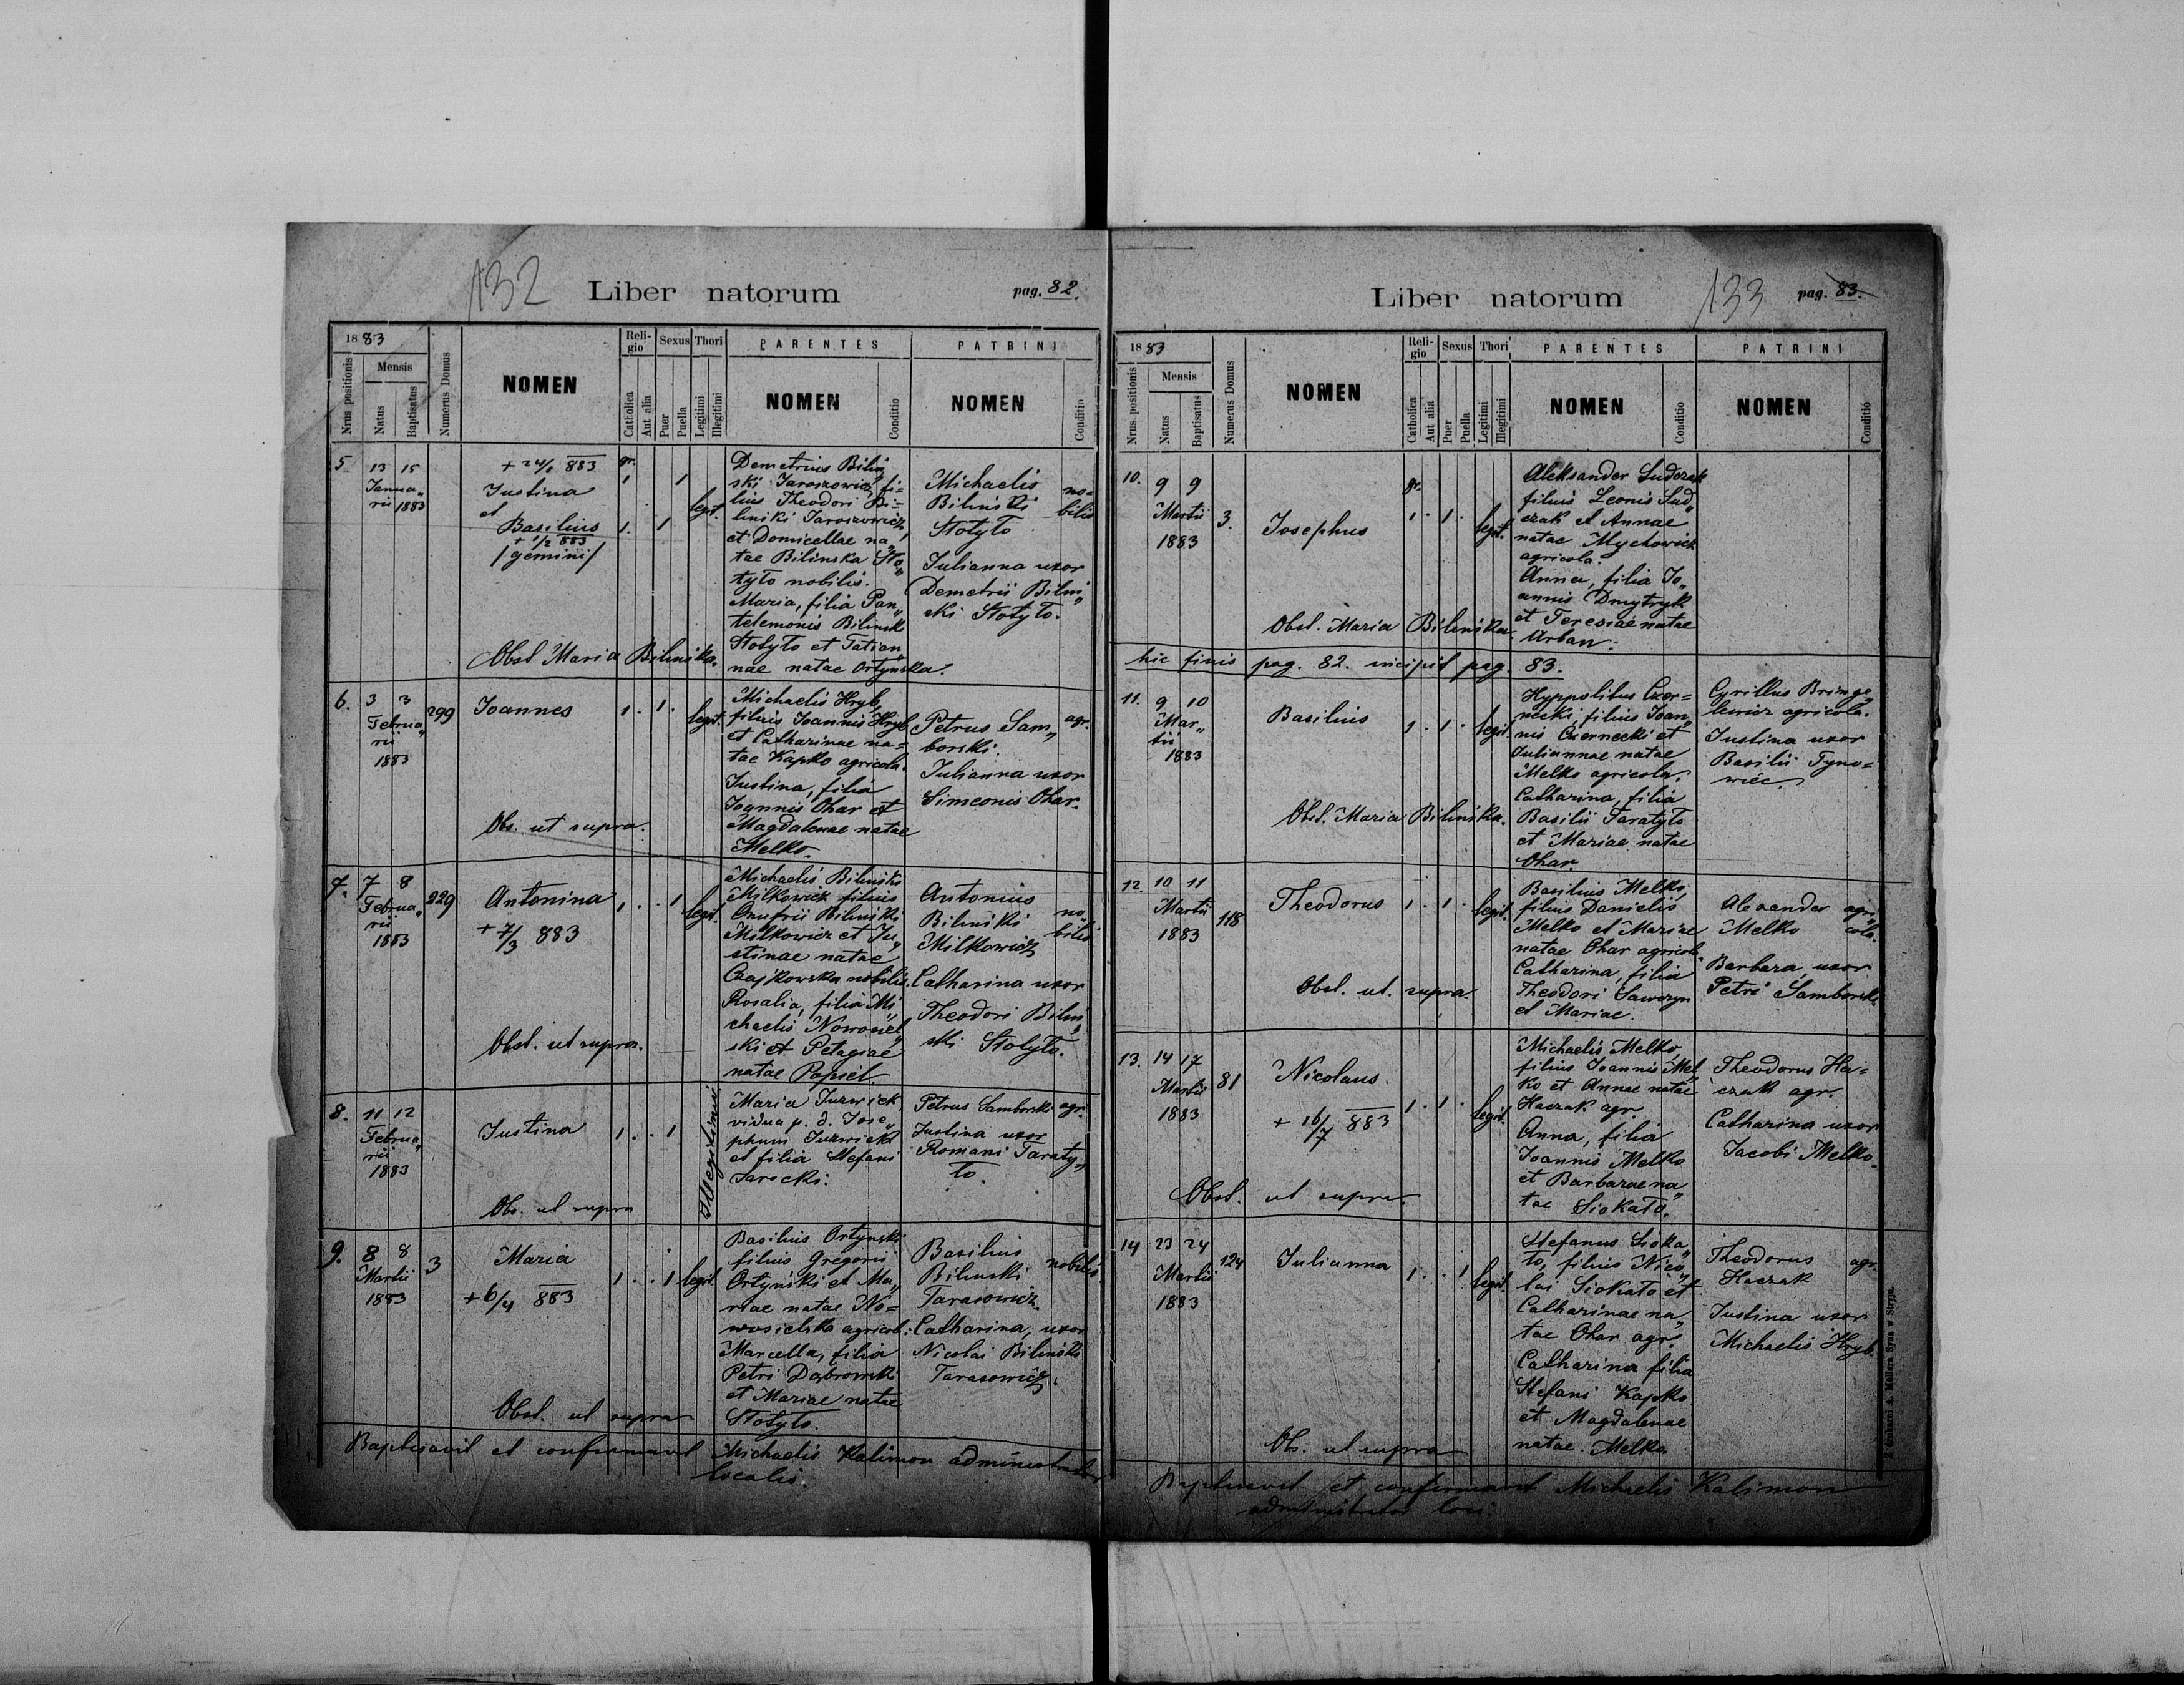 132
Liber natorum
pag. 82.
1883
Nrus positionis
Mensis
Natus
Baptisatus
Numerus Domus
NOMEN
Religio
Catholica
Aut alia
Sexus
Puer
Puella
Thori
Legitimi
Illegitimi
PARENTES
NOMEN
Conditio
PATRINI
NOMEN
Conditio
5.
13 15
Janua„
rii 1883
+ 24/1 883
Justina
et
Basilius
+ 1/2 883
/gemini/
gr.
1 1
1. 1
legit.
Demetrius Bilin„
ski Jaroszowicz, fi-
lius Theodori Bi-
linski Jaroszowicz
et Domicellae na„
tae Bilinska Sto„
tyło nobilis.
Maria, filia Pan„
telemonis Bilinski
Stotyło et Tatian„
nae natae Ortynska.
Michaelis
Biliński
Stotyło
Julianna uxor
Demetrii Bilin„
ski Stotyło.
no-
bilis
Obst Maria Bilinska.
6.
3 3
Februa„
rii
1883
299
Joannes
1. 1.
legit.
Michaelis Hryb,
filius Joannis Hryb
et Catharinae na-
tae Kapko agricola.
Justina, filia
Joannis Ohar et
Magdalenae natae
Melko.
Petrus Sam„
borski.
Julianna uxor
Simeonis Ohar.
agr.
Obs. ut supra.
7.
7 8
Februa„
rii
1883
229
Antonina
+ 7/3 883
1. . 1
legit.
Michaelis Biliński
Milkowicz filius
Onufrii Biliński
Milkowicz et Ju„
stinae natae
Czajkowska nobilis.
Rosalia, filia Mi„
chaelis Nowosiel„
ski et Pelagiae
natae Popiel.
Antonius
Biliński
Milkowicz
Catharina uxor
Theodori Bilin„
ski Stotyło.
no„
bilis
Obst. ut supra.
8.
11 12
Februa„
rii
1883
Justina
1. . 1
Illegitimi
Maria Juzwick,
vidua p. d. Jose„
phum Juzwick
et filia Stefani
Jarocki.
Petrus Samborski
Justina uxor
Romani Taraty„
ło.
agr.
Obs. ut supra
9.
8 8
Martii
1883
3
Maria
+ 6/4 883
1. . 1
legit.
Basilius Ortynski
filius Gregorii
Ortyński et Ma„
riae natae No=
wosielska agricol:
Marcella, filia
Petri Dąbrowski
et Mariae natae
Stotyło.
Basilius
Bilinski
Tarasowicz.
Catharina, uxor
Nicolai Biliński
Tarasowicz.
nobilis
Obst. ut supra
Baptisavit et confirmavit Michaelis Kalimon administrator
localis.
133
Liber natorum
pag. 83.
1883
Nrus positionis
Mensis
Natus
Baptisatus
Numerus Domus
NOMEN
Religio
Catholica
Aut alia
Sexus
Puer
Puella
Thori
Legitimi
Illegitimi
PARENTES
NOMEN
Conditio
PATRINI
NOMEN
Conditio
10.
9 9
Martii
1883
3.
Josephus
gr.
1. 1.
legit.
Aleksander Sudczak
filius Leonis Sud„
czak et Annae
natae Mychowicz
agricola.
Anna, filia Jo„
annis Dmytryk
et Teresiae natae
Urban.
Obst. Maria Bilinska.
hic finis pag. 82. incipit pag. 83.
11.
9 10
Mar„
tii
1883
Basilius
1. 1.
legit.
Hyppolitus Czer=
necki, filius Joan„
nis Czernecki et
Juliannae natae
Melko agricola.
Catharina, filia
Basilii Taratyło
et Mariae natae
Ohar.
Cyrillus
agricola.
Justina uxor
Basilii Tyno=
wiec.
Obst. Maria Bilinska.
12.
10 11
Martii
1883
118
Theodorus
1. 1.
legit.
Basilius Melko,
filius Danielis
Melko et Mariae
natae Ohar agricola.
Catharina, filia
Theodori Sawczyn
et Mariae.
Alexander
Melko
Barbara, uxor
Petri Samborski
agri„
cola.
Obst. ut. supra.
13.
14 17
Martii
1883
81
Nicolaus.
+ 16/7 883
1. 1.
legit.
Michaelis Melko,
filius Joannis Mel„
ko et Annae natae
Haczak agr.
Anna, filia
Joannis Melko
et Barbarae na„
tae Siokało.
Theodorus Ha=
czak agr.
Catharina uxor
Jacobi Melko.
Obst. ut supra.
14
23 24
Martii
1883
124
Julianna
1. . 1
legit.
Stefanus Sioka„
ło, filius Nico„
lai Siokało et
Catharinae na„
tae Ohar agr.
Catharina filia
Stefani Kapko
et Magdalenae
natae. Melko
Theodorus
Haczak
Justina uxor
Michaelis Hryb.
agr.
Ob. ut supra
Baptisavit et confirmavit Michaelis Kalimon
administrator loci.